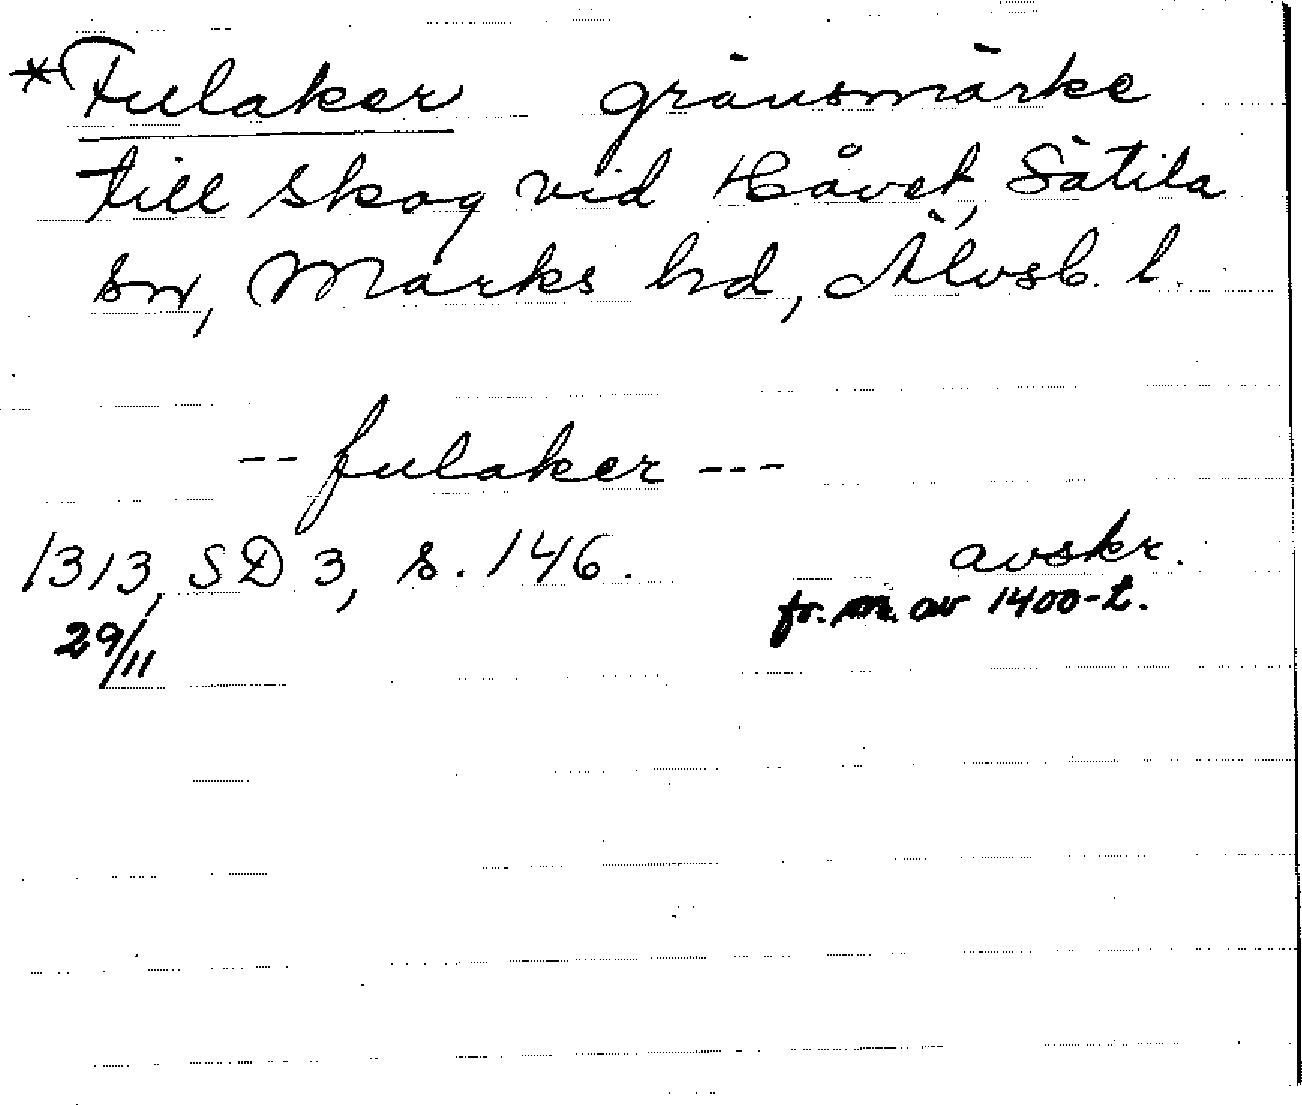 *Fulaker gränsmärke
till skog vid Håvet, Sätila
sn, Marks hd, Älvsb. l.
-- fulaker ---
1313, SD 3, s. 146. avskr.
29/11 fr. m. av 1400-t.